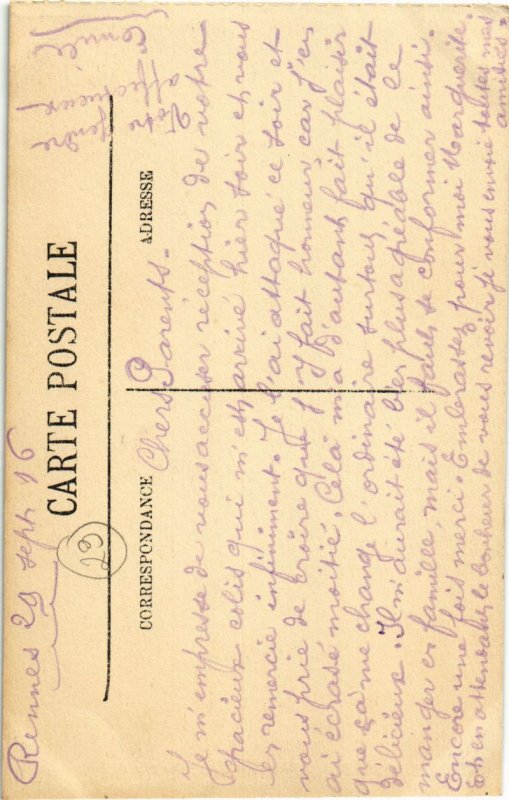 Rennes 29 sept 16
CARTE POSTALE
CORRESPONDANCE
ADRESSE
Chers Parents -
Je m'empresse de vous accuser réception de votre
gracieux colis qui m'est arrivé hier soir et vous
en remercie infiniment. Je l'ai attaqué ce soir et
vous prie de croire que j'y fait honneur car j'en
ai échasé moitié. Celà m'a d'autant fait plaisir
que ça me change l'ordinaire surtout qu'il était
délicieux. Il m'aurait été bien plus agréable de le
manger en famille, mais il faut se conformer ainsi.
Encore une fois merci. Embrassez pour moi Marguerite
et en attendant le bonheur de vous revoir je vous envoie toutes mes
amitiés -
Votre
tendre
affectueux